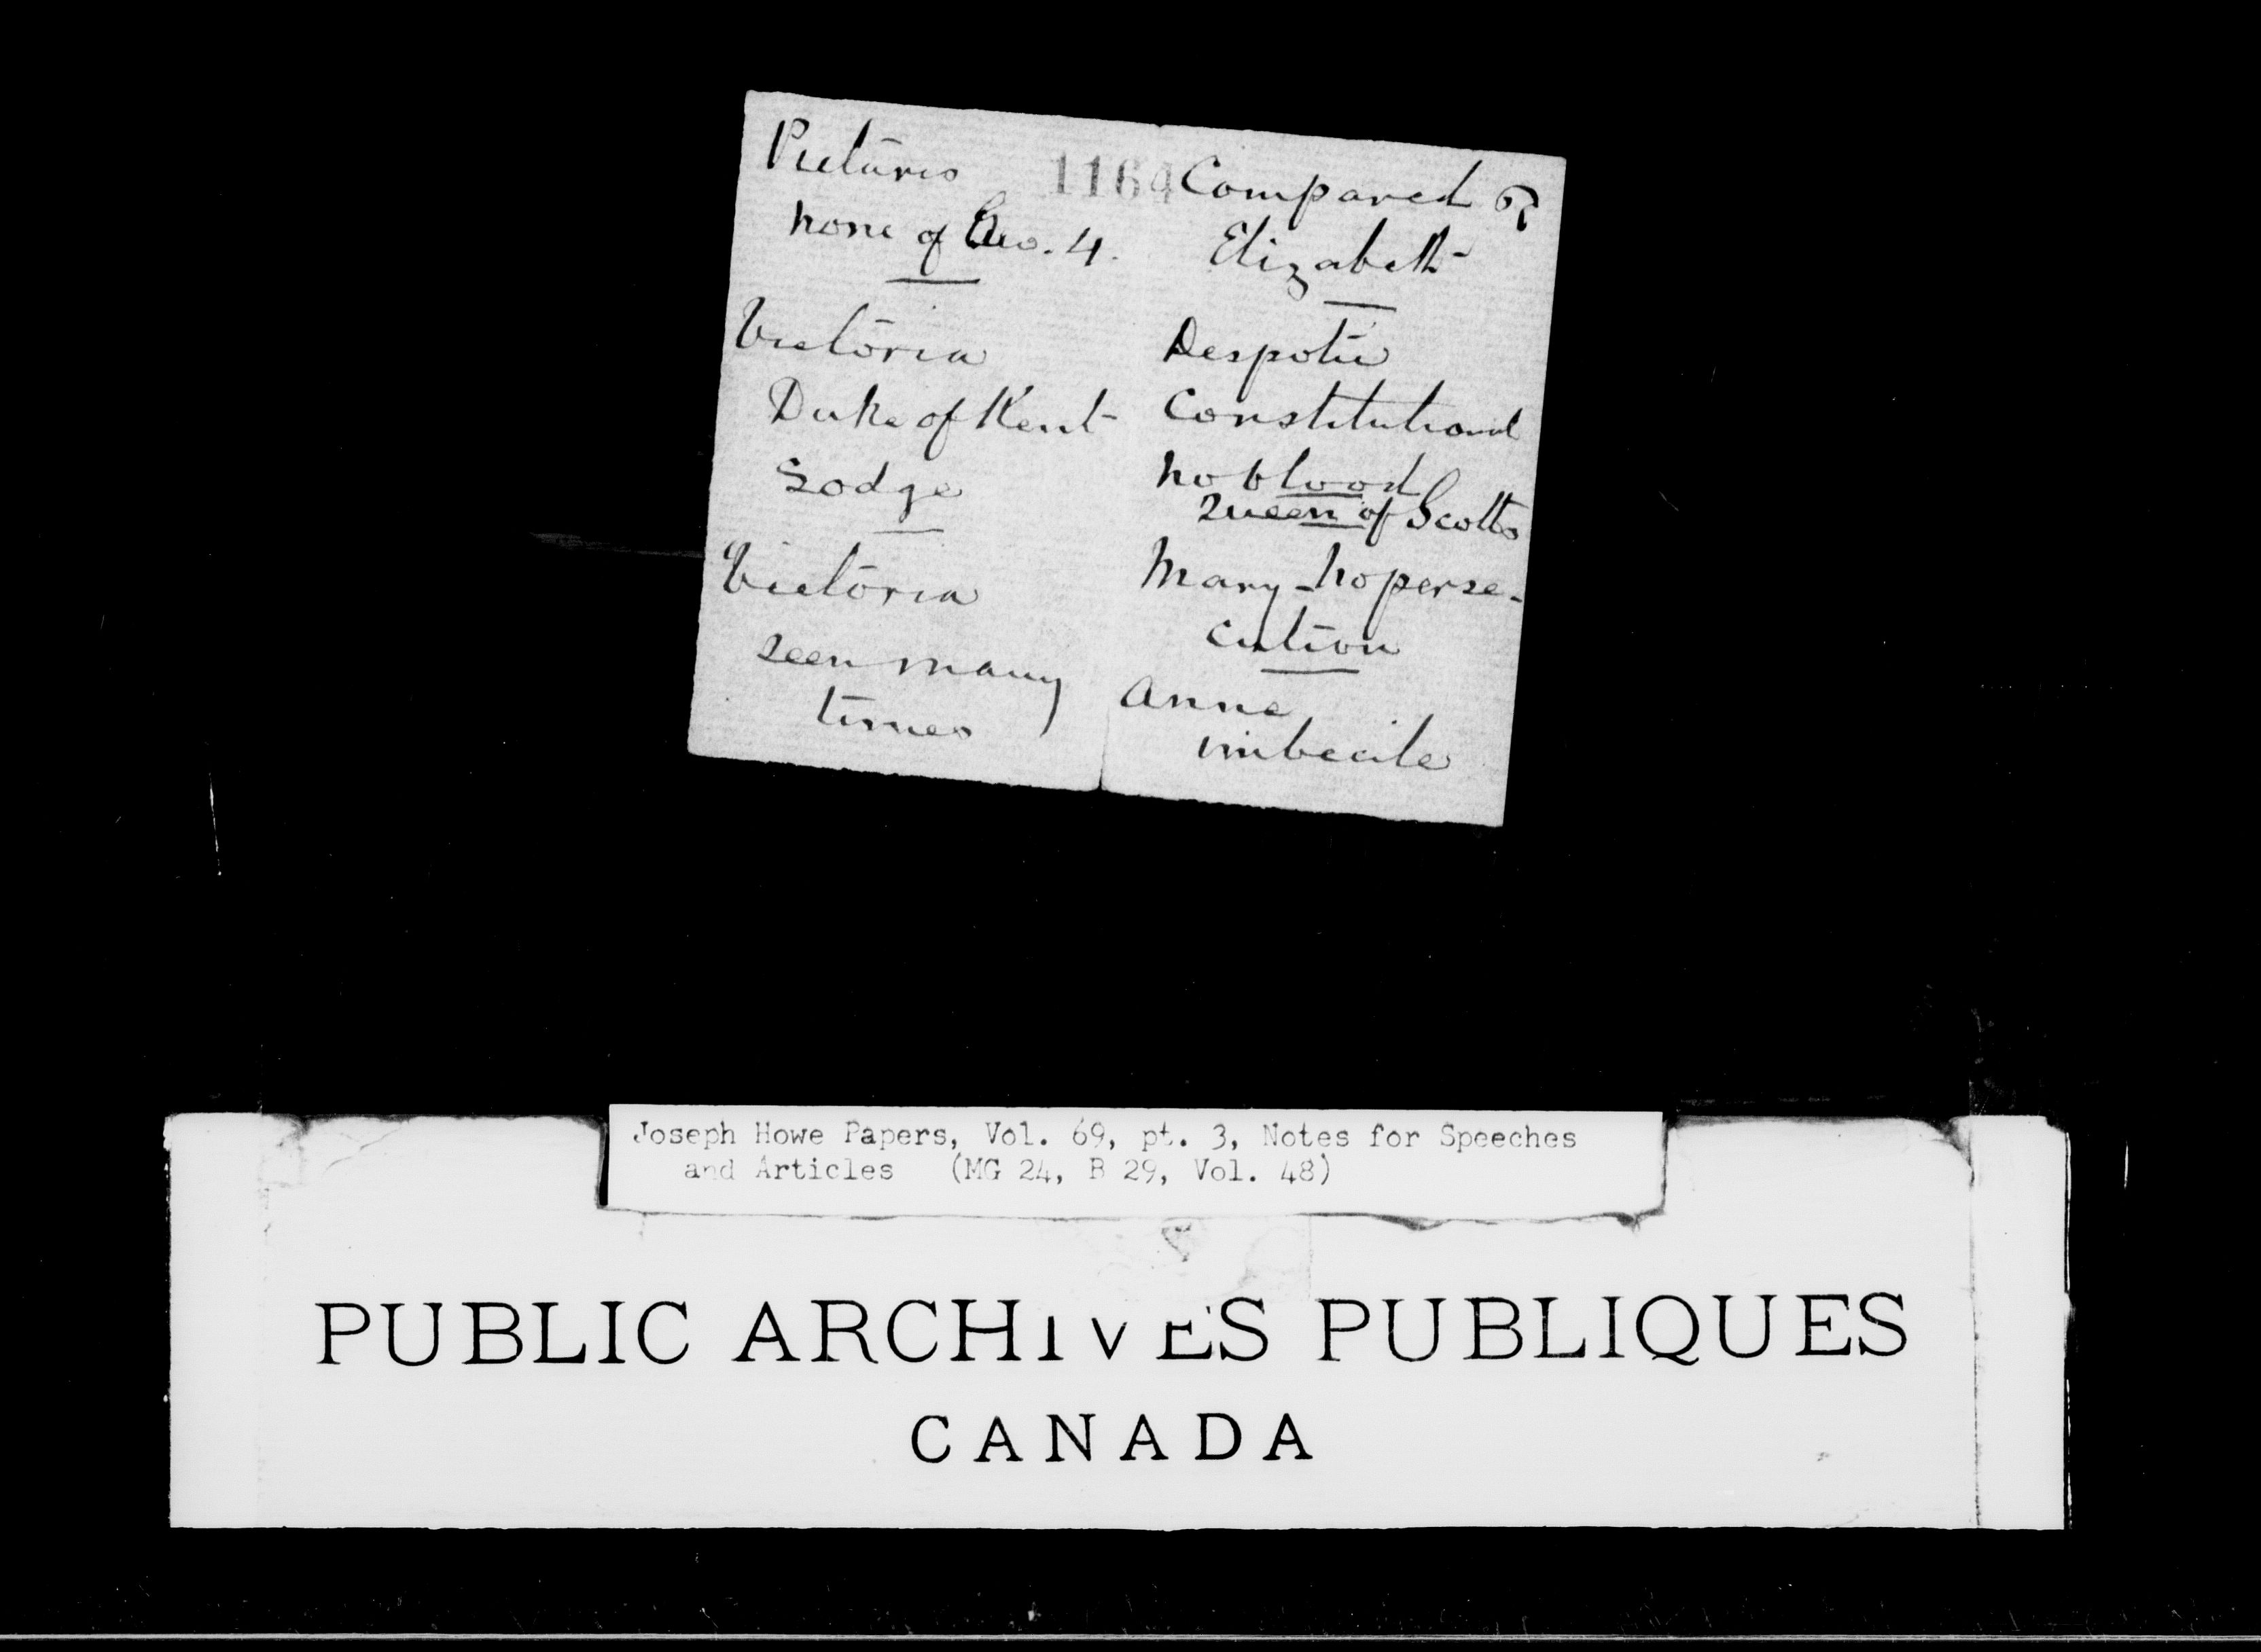 Pictures
none of Geo. 4.
Victoria
Duke of Kent
Lodge
Victoria
seen many
times
1164
Compared
Elizabeth
Despotic
Constitutional
no blood
Queen of Scotts
Mary - no perse-
cution
Anne
imbecile
Joseph Howe Papers, Vol. 69, pt. 3, Notes for Speeches
and Articles (MG 24, B 29, Vol. 48)
PUBLIC ARCHIVES PUBLIQUES
CANADA